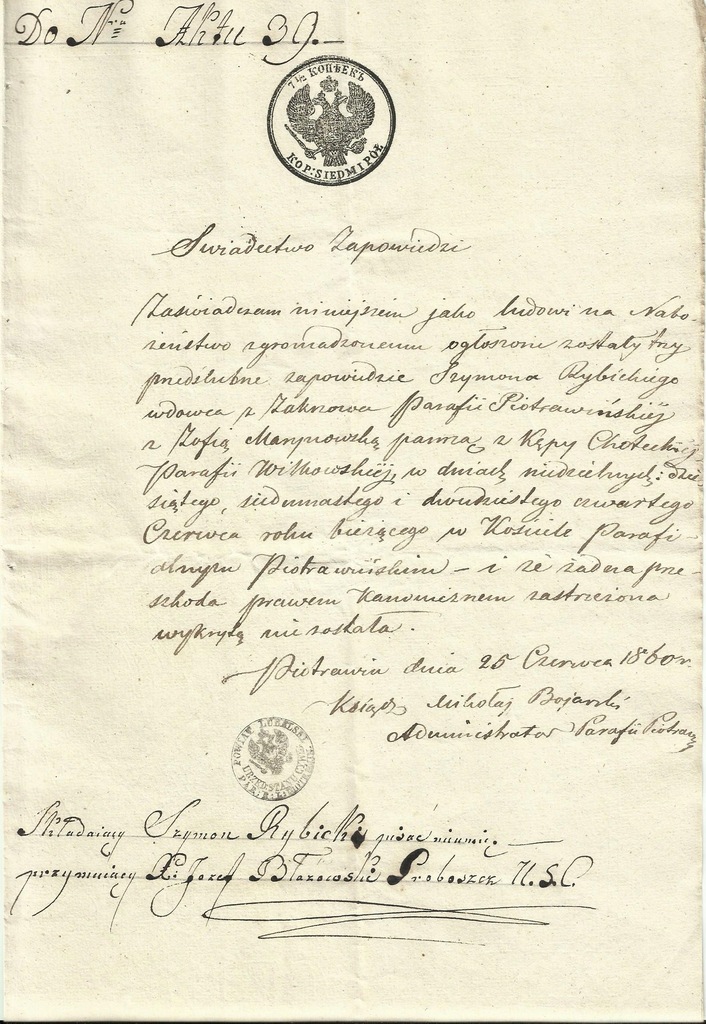 Do Nru Aktu 39.
7 1/2 КОПѢЕКЪ
KOP: SIEDM I PÓŁ
Swiadectwo Zapowiedzi
Zaświadczam niniejszem jako ludowi na Nabo-
żeństwo zgromadzonemu ogłoszone zostały trzy
przedślubne zapowiedzie Szymona Rybickiego
wdowca z Zakrzowa Parafii Piotrawińskiéj
z Zofią Marynowską panną z Kępy Choteckiéj
Parafii Wilkowskiéj, w dniach niedzielnych: dzie-
siątego, siedmnastego i dwudziestego czwartego
Czerwca roku bieżącego w Kościele Parafi-
alnym Piotrawińskim – i że żadna prze-
szkoda prawem Kanonicznem zastrzeżona
wykrytą nie została.
Piotrawin dnia 25 Czerwca 1860 r.
Ksiądz Mikołaj Bojarski
Administrator Parafii Piotrawin
POWIAT LUBELSKI
URZĘD. STANU CYW.
PAR. R. L.
Składaiący Szymon Rybicki pisać nieumie. —
przyimuiący X. Jozef Błazowski Proboszcz U. S. C.